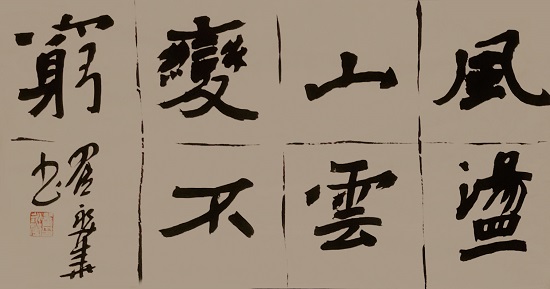 風盪
山雲
變不
窮